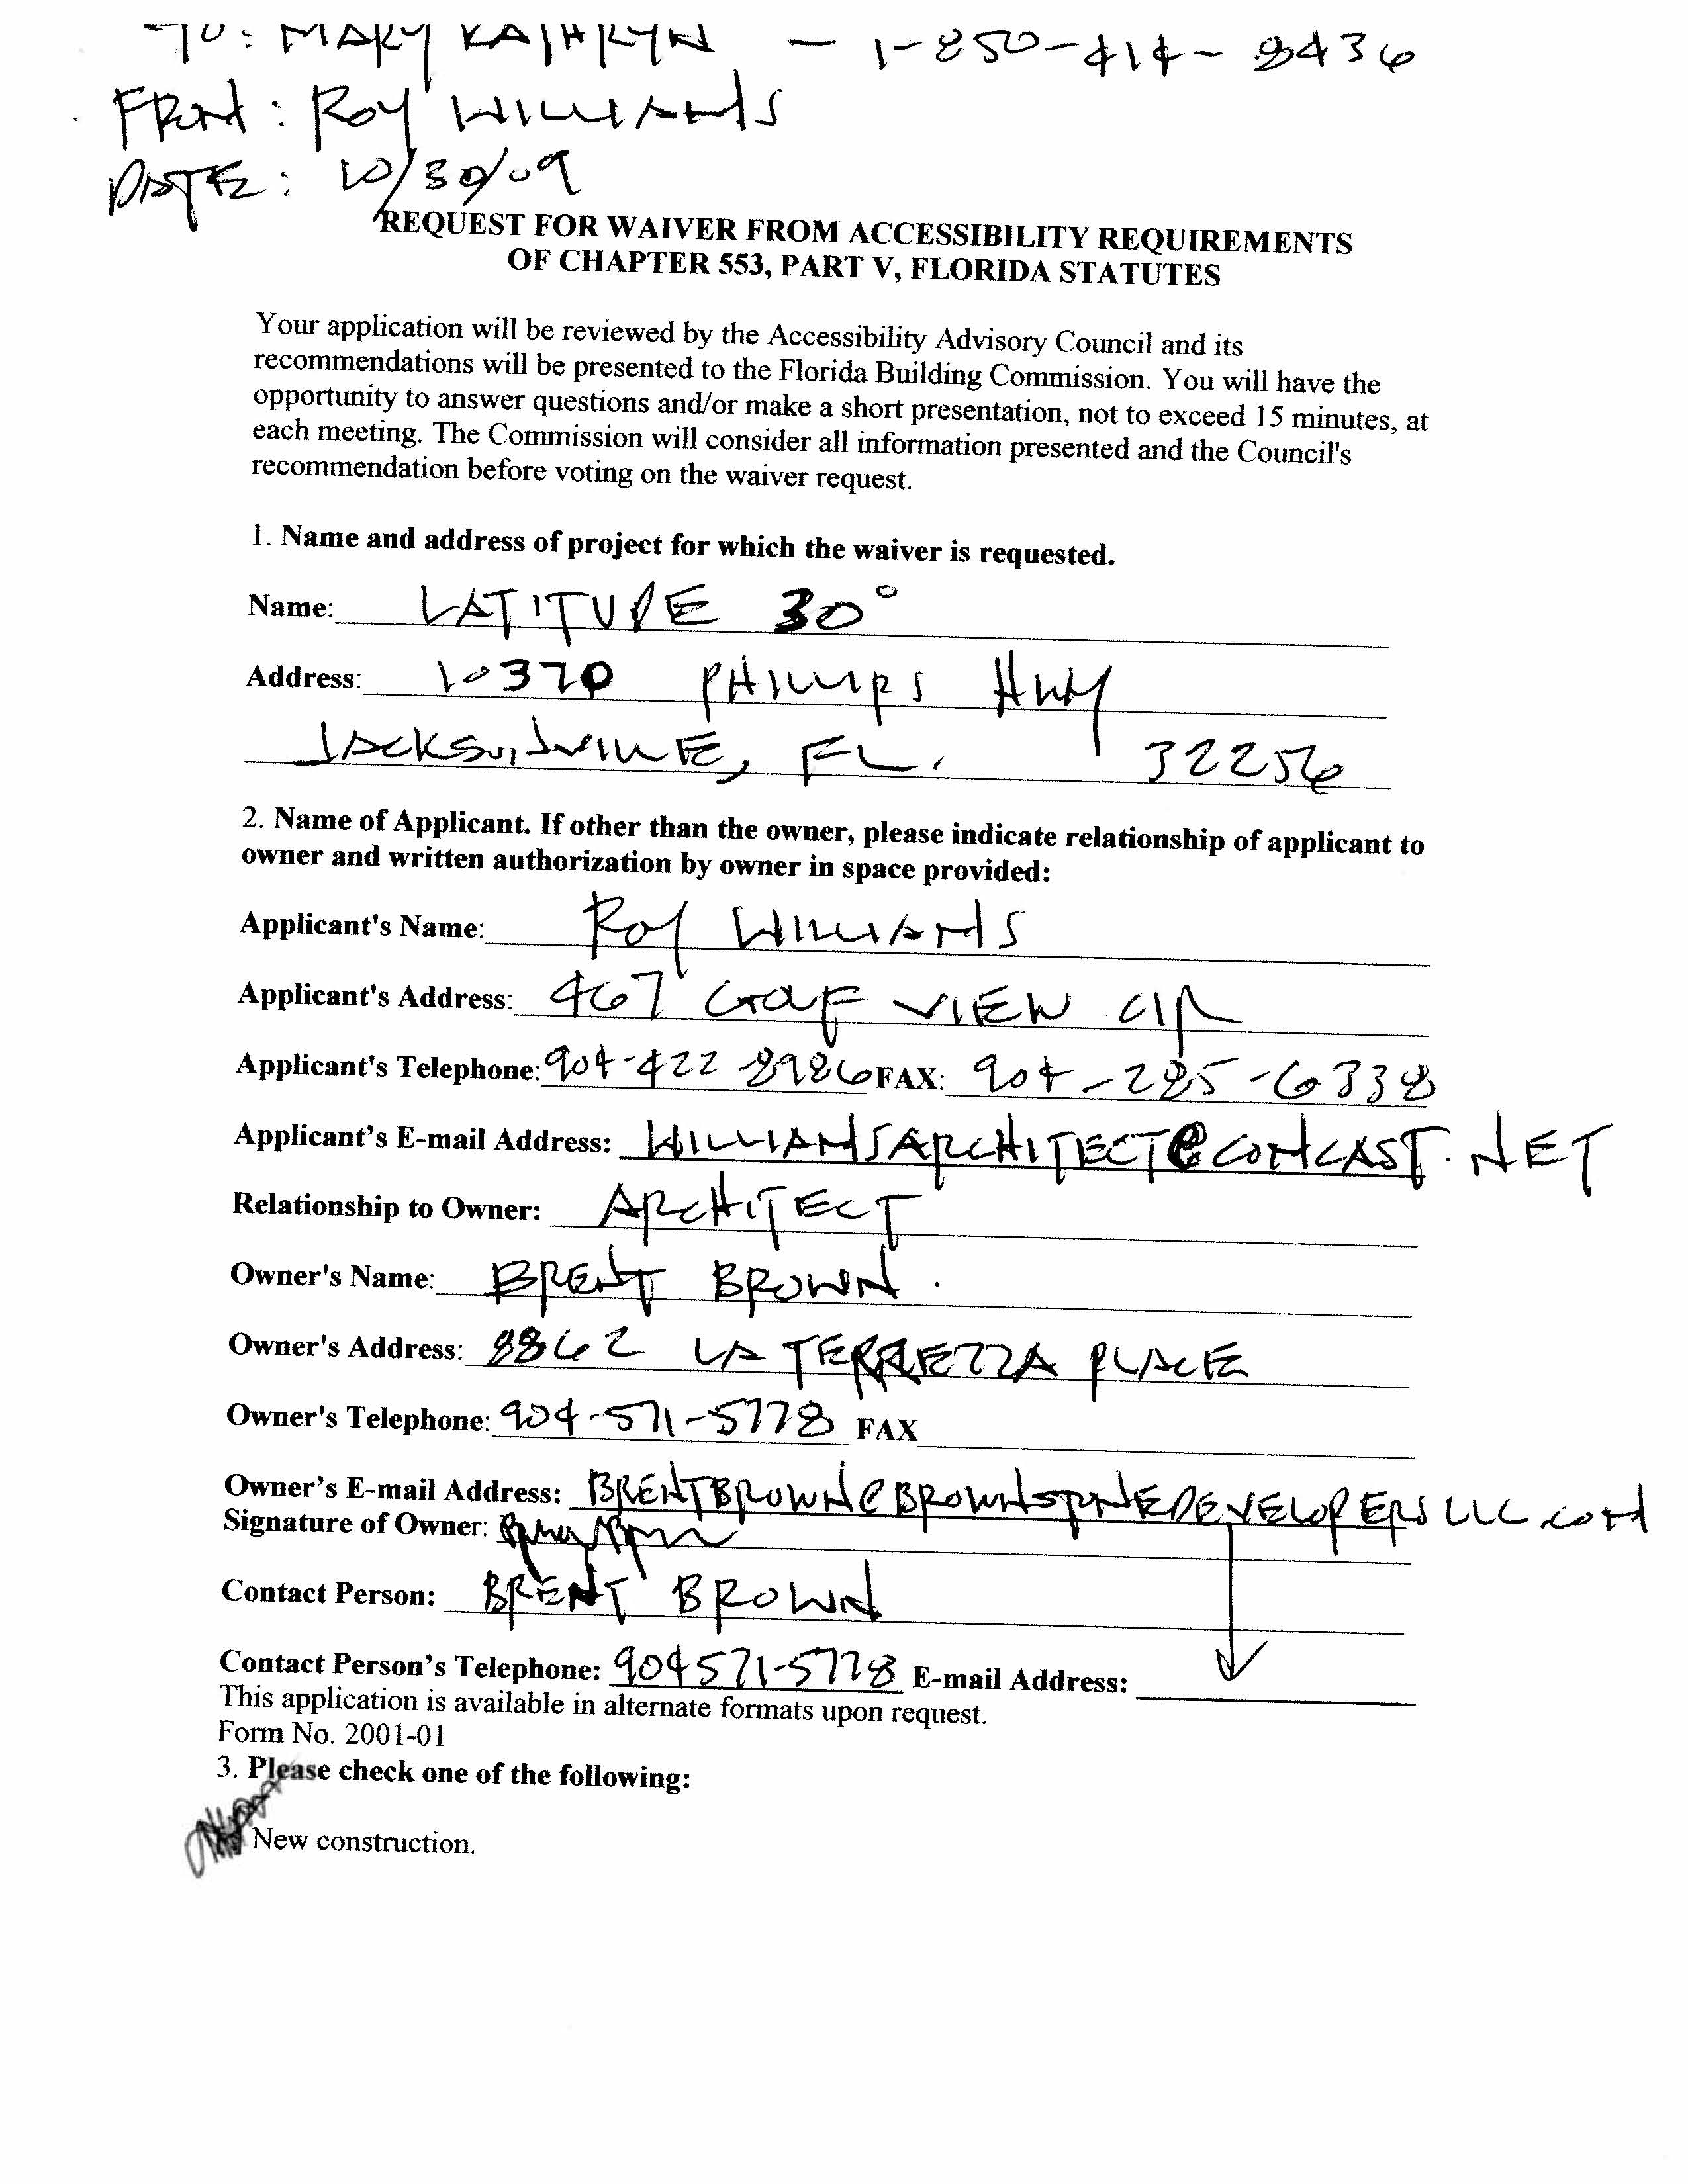 TO: MARY KATHRYN — 1-850-414-8436
FROM: ROY WILLIAMS
DATE: 10/30/09
REQUEST FOR WAIVER FROM ACCESSIBILITY REQUIREMENTS
OF CHAPTER 553, PART V, FLORIDA STATUTES
Your application will be reviewed by the Accessibility Advisory Council and its
recommendations will be presented to the Florida Building Commission. You will have the
opportunity to answer questions and/or make a short presentation, not to exceed 15 minutes, at
each meeting. The Commission will consider all information presented and the Council's
recommendation before voting on the waiver request.
1. Name and address of project for which the waiver is requested.
Name: LATITUDE 30°
Address: 10370 PHILLIPS HWY
JACKSONVILLE, FL. 32256
2. Name of Applicant. If other than the owner, please indicate relationship of applicant to
owner and written authorization by owner in space provided:
Applicant's Name: ROY WILLIAMS
Applicant's Address: 467 GOLF VIEW CIR
Applicant's Telephone: 904-422-8986 FAX: 904-285-6338
Applicant's E-mail Address: WILLIAMSARCHITECT@COMCAST.NET
Relationship to Owner: ARCHITECT
Owner's Name: BRENT BROWN.
Owner's Address: 8862 LA TERREZZA PLACE
Owner's Telephone: 904-571-5778 FAX
Owner's E-mail Address: BRENTBROWN@BROWNSTONEDEVELOPERSLLC.COM
Signature of Owner:
Contact Person: BRENT BROWN
Contact Person's Telephone: 904571-5778 E-mail Address:
This application is available in alternate formats upon request.
Form No. 2001-01
3. Please check one of the following:
New construction.